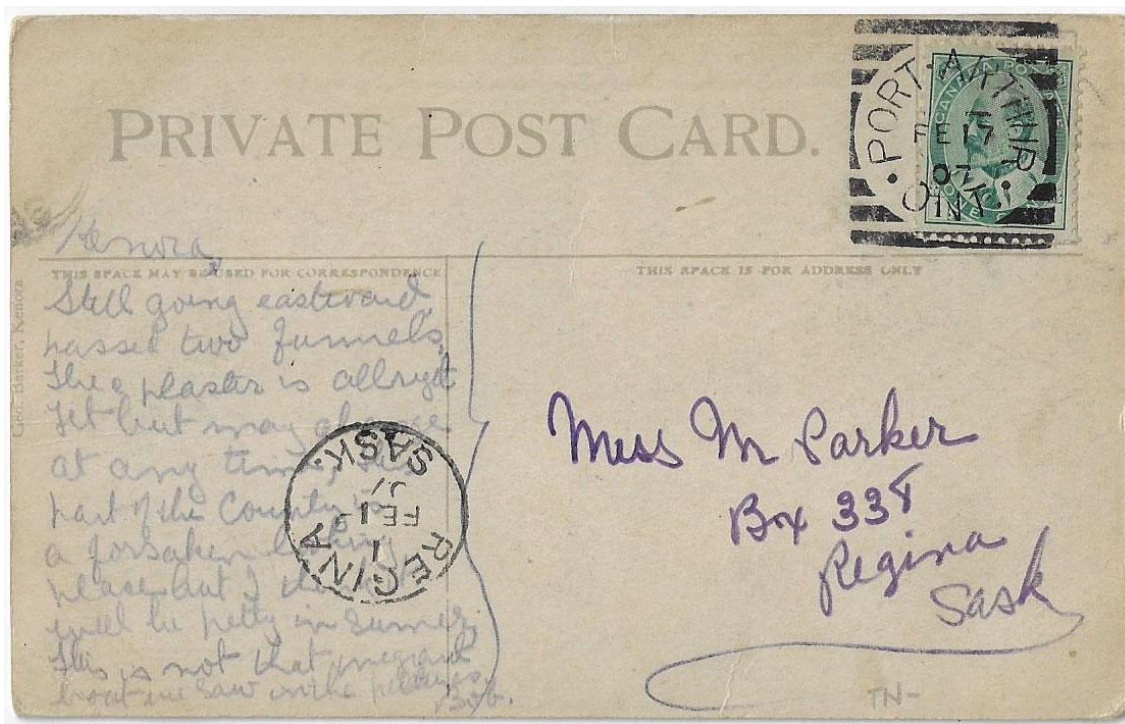 PRIVATE POST CARD.
PORT ARTHUR
FE 17
07
ONT
CANADA POSTAGE
ONE
Kenora
THIS SPACE MAY BE USED FOR CORRESPONDENCE
THIS SPACE IS FOR ADDRESS ONLY
Geo. Barker, Kenora
Still going eastward,
passed two funnels,
The plaster is allright
Yet but may change
at any time,
part of the Country is
a forsaken looking
place but I
will be petty in Sumer,
This is not that
boat we saw in the
Bob.
REGINA
SASK.
1
FE 19
07
Miss M Parker
Box 338
Regina
Sask
TN-